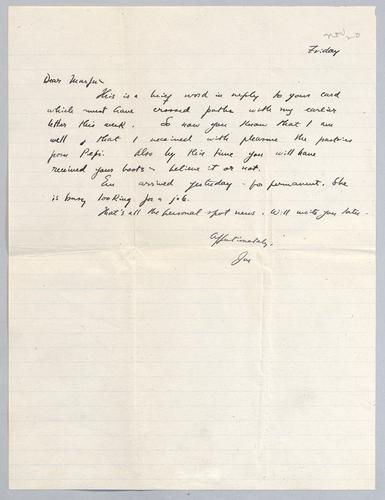 Friday
Dear
This is a brief word in reply to your card
which must have crossed paths with my earlier
letter this week. So now you know that I am
well, that I received with pleasure the pastries
from Papi. Also by this time you will have
received your boots - believe it or not.
Em arrived yesterday - for permanent. She
is busy looking for a job.
That's all the personal spot news. Will write you later.
Affectionately,
Joe